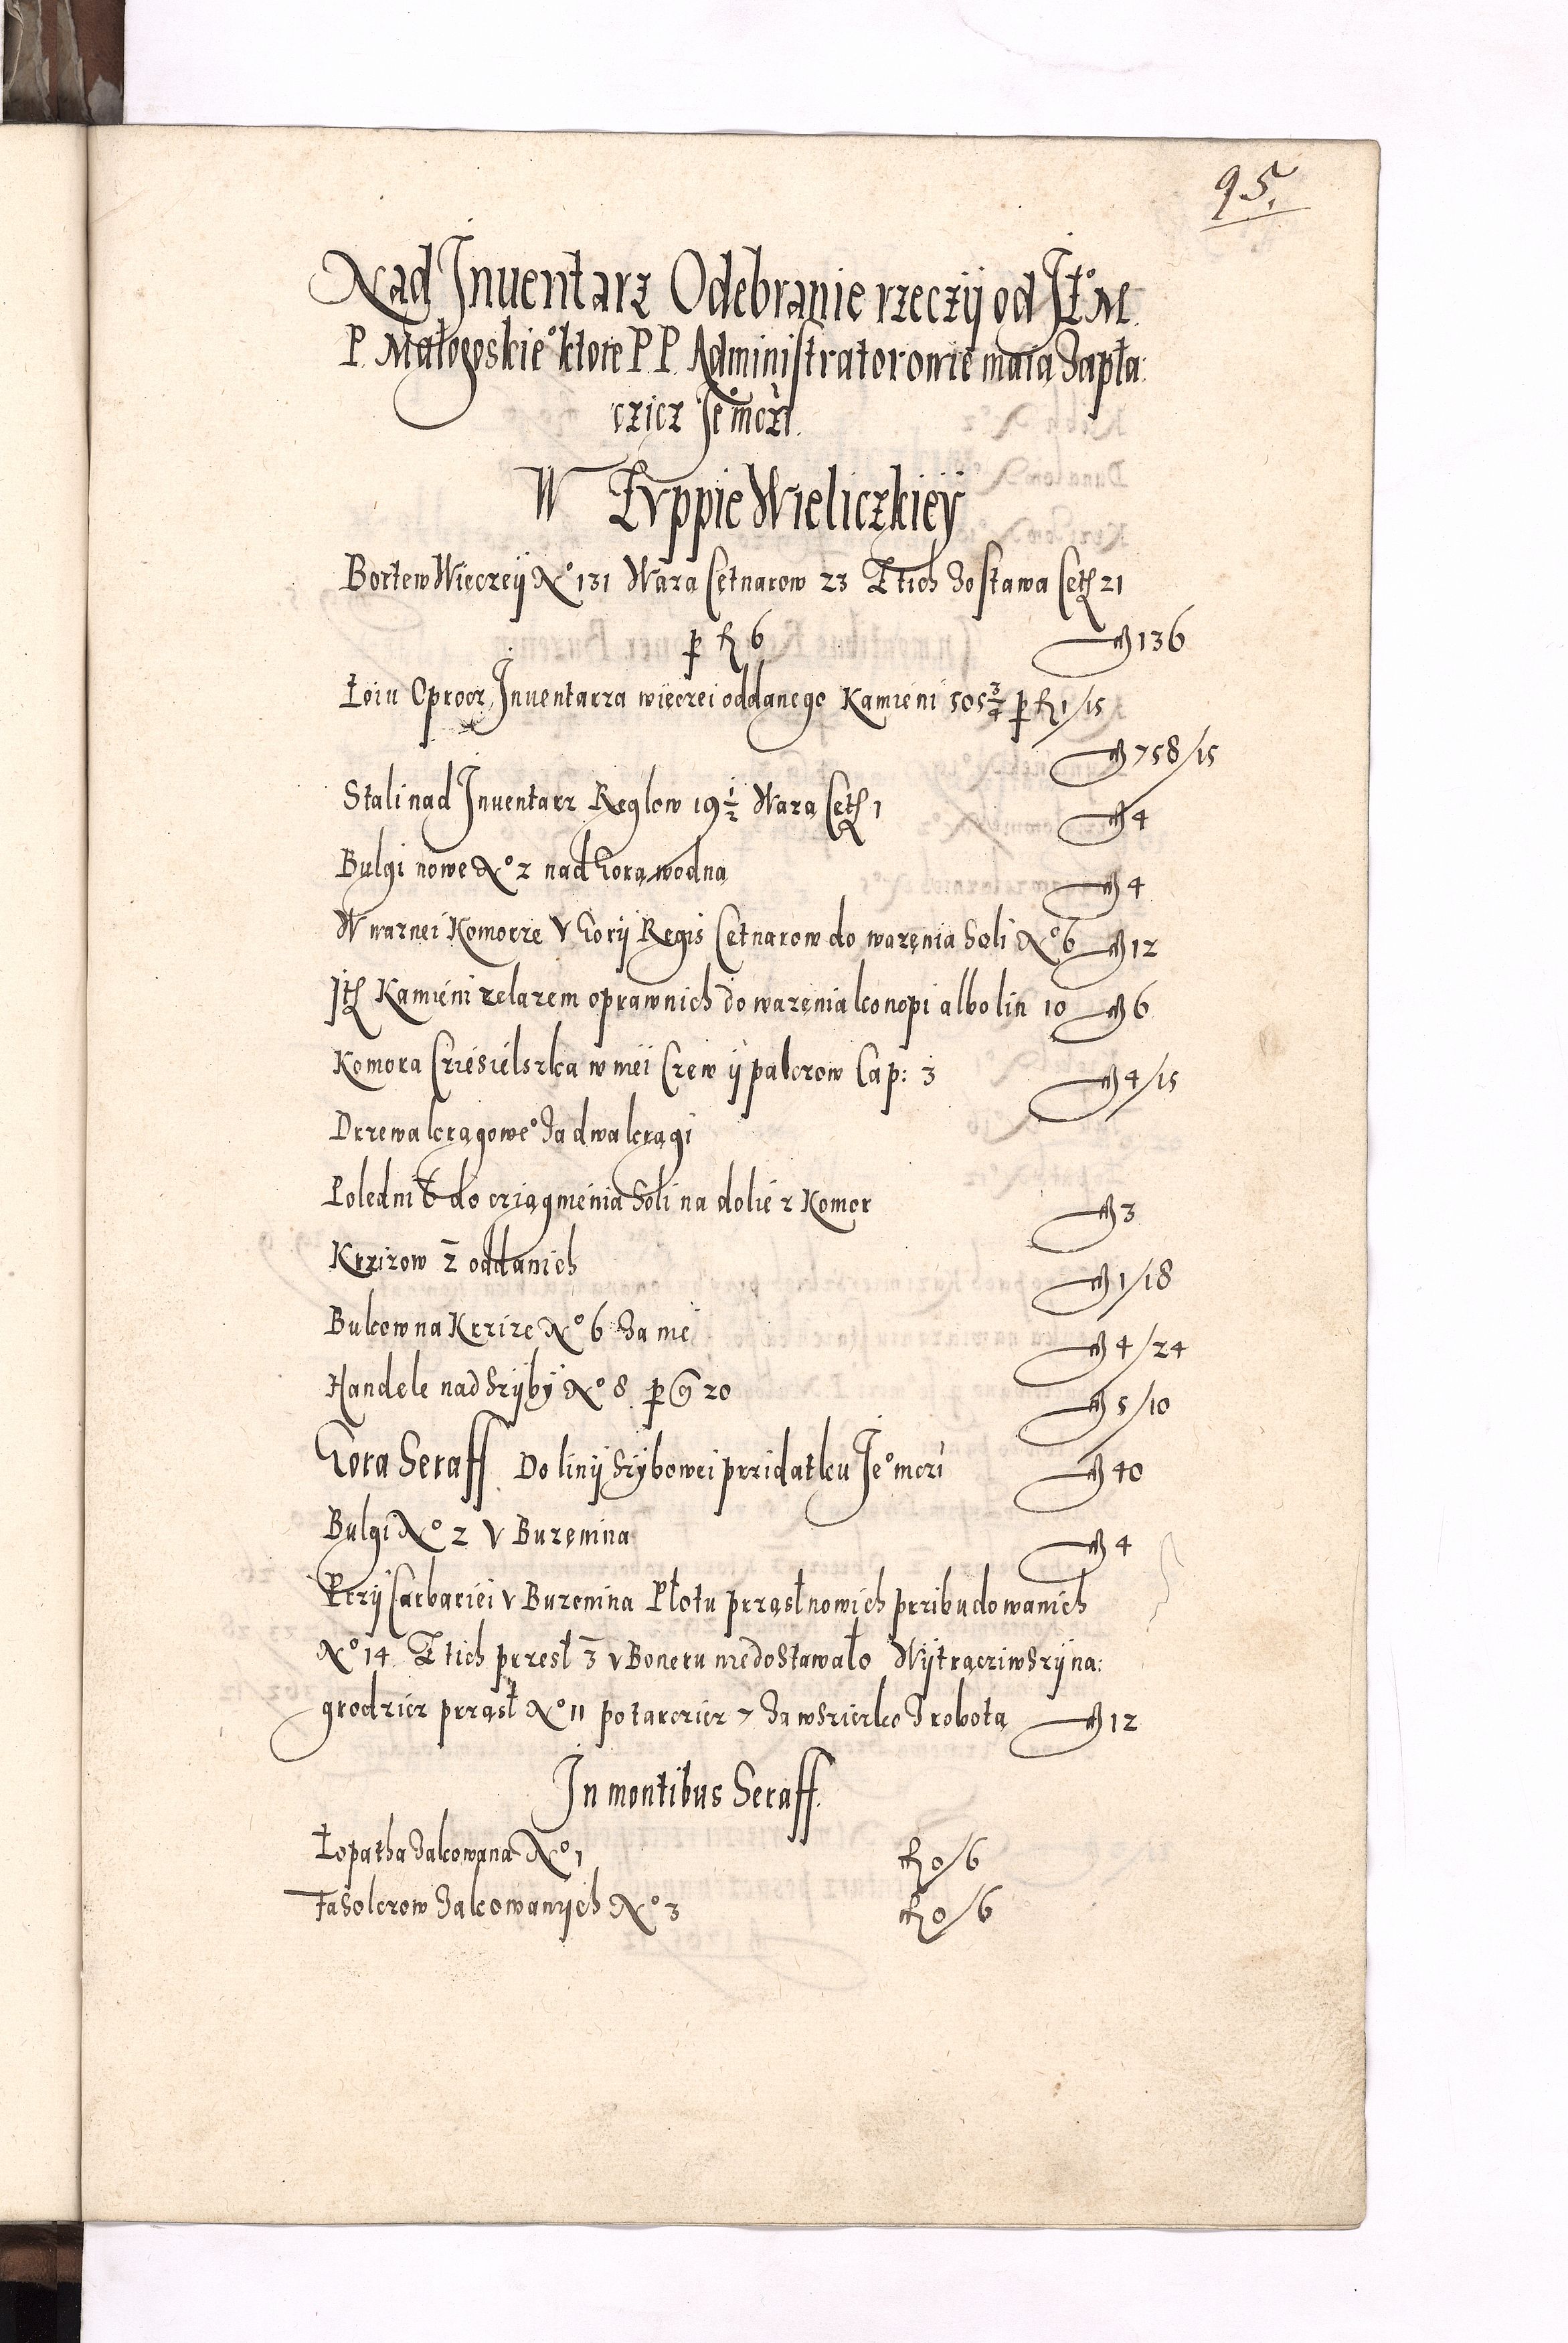 95.
Nad Inuentarz Odebranie rzeczÿ od Jº M.
P. Małogoskieº ktore P.P. Administratorowie maią Zapła:
czicz Jeº mczi.
W Zvppie Wieliczkieÿ
Bortew Więczeÿ Nº 131 Waza Cętnarow 23 Z tich Zostawa Cet 21
p fl 6 fl 136
Łoiu Oprocz Inuentarza więczei oddanego Kamieni 505 3/4 p fl 1/15
fl 758/15
Stali nad Inuentarz Reglow 19 1/2 Waza Cet 1 fl 4
Bulgi nowe Nº 2 nad Gorą wodną fl 4
W warnei Komorze V Gorÿ Regis Cetnarow do wazęnia Soli Nº 6 fl 12
It Kamieni zelazem oprawnich do wazęnia konopi albo lin 10 fl 6
Komora Cziesielszka w niei Czew ÿ palczow Cap: 3 fl 4/15
Drzewa krągoweº Za dwa krągi
Polednit do cziągnienia Soli na dolie z Komor fl 3
Krzizow 2 oddanich fl 1/18
Bukow na Krzize Nº 6 Za nie fl 4/24
Handele nad Szÿbÿ Nº 8 p g 20 fl 5/10
Gora Seraff. Do linÿ Szÿbowei przidatku Jeº mczi fl 40
Bulgi Nº 2 V Buzenina fl 4
Przÿ Carbariei v Buzenina Płotu prząsł nowich przibudowanich
Nº 14. Z tich przesł 3 v Boneru niedostawało Wÿtrącziwszÿ na:
grodzicz prząsł Nº 11 po tarczicz 7 Za wszierko Z robotą fl 12
In montibus Seraff.
Łopatha Zakowana Nº 1 fl 0/6
Fasolczow Zakowanych Nº 3 fl 0/6